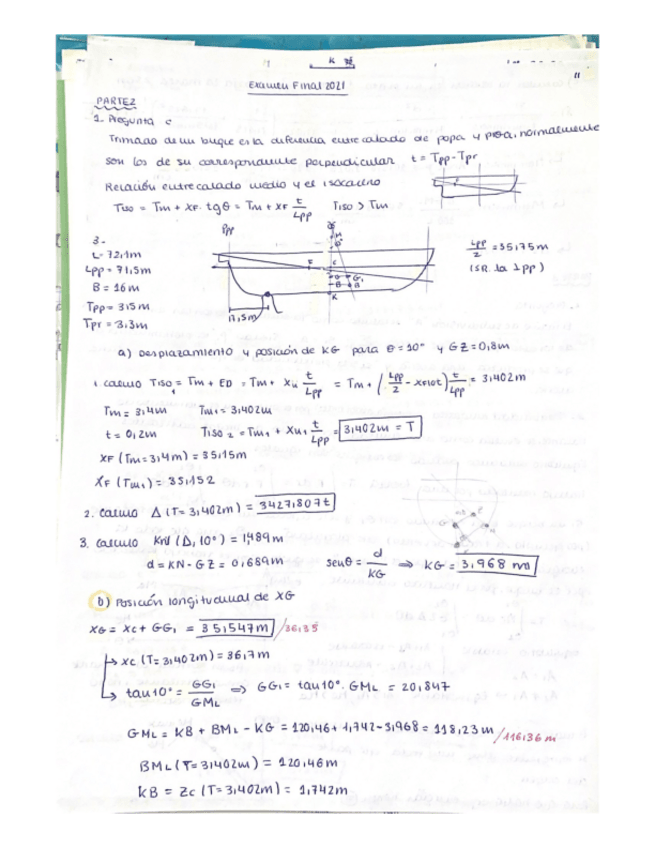 Examen Final 2021
11
PARTE 2
1. Pregunta c
Trimado de un buque es la diferencia entre calado de popa y proa, normalmente
son los de su correspondiente perpendicular t = Tpp - Tpr
Relación entre calado medio y el isocarino
Tiso = Tm + XF · tgθ = Tm + XF t/Lpp Tiso > Tm
3 -
L = 72,1m
Lpp = 71,5m
B = 16m
Tpp = 3,5m
Tpr = 3,3m
Ppp
F
G G1
B B
K
Lpp/2 = 35,75m
(SR. la ⊥pp)
a) Desplazamiento y posición de KG para θ = 10° y GZ = 0,8m
1. Calculo Tiso1 = Tm + ED = Tm + Xu t/Lpp = Tm + (Lpp/2 - xflot) t/Lpp = 3,402m
Tm = 3,4m Tm1 = 3,402m
t = 0,2m Tiso2 = Tm1 + Xu1 t/Lpp = 3,402m = T
XF (Tm = 3,4m) = 35,15m
XF (Tm1) = 35,152
2. Calculo Δ (T = 3,402m) = 3427,807t
3. Calculo KN (Δ, 10°) = 1,489m
d = KN - GZ = 0,689m senθ = d/KG ⇒ KG = 3,968 m
b) Posición longitudinal de XG
XG = XC + GG1 = 35,547m /36,35
XC (T = 3,402m) = 36,7m
tan10° = GG1/GML ⇒ GG1 = tan10° · GML = 20,847
GML = KB + BML - KG = 120,46 + 1,742 - 3,968 = 118,23m /116,36m
BML (T = 3,402m) = 120,46m
KB = ZC (T = 3,402m) = 1,742m